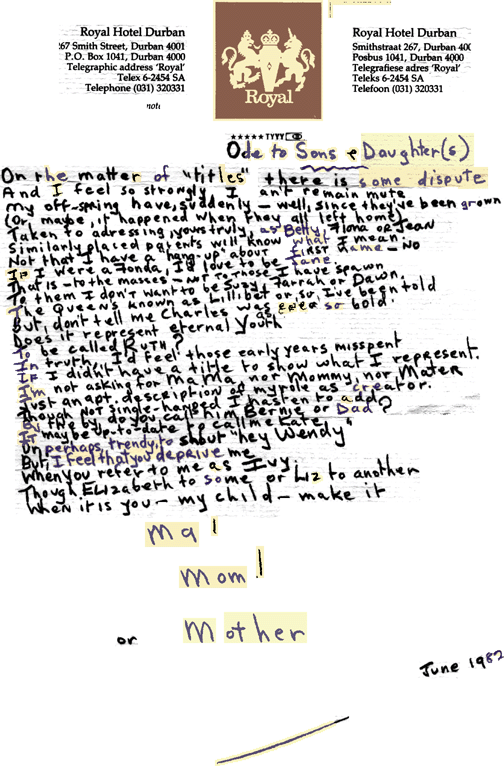 Royal Hotel Durban
267 Smith Street, Durban 4001
P.O. Box 1041, Durban 4000
Telegraphic address 'Royal'
Telex 6-2454 SA
Telephone (031) 320331
Royal
Royal Hotel Durban
Smithstraat 267, Durban 400
Posbus 1041, Durban 4000
Telegrafiese adres 'Royal'
Teleks 6-2454 SA
Telefoon (031) 320331
*****TYYY
Ode to Sons & Daughter(s)
On the matter of "titles" there is some dispute
And I feel so strongly, I can't remain mute
My off-spring have, suddenly - well, since they've been grown
(Or maybe, it happened when they all left home)
Taken to adressing yours truly, as Betty, Fiona or Jean
Similarly placed parents will know what I mean.
Not that I have a "hang-up" about first name - no
If I were a Fonda, I'd love to be Jane.
That is - to the masses - not to those I have spawn
To them I don't want to be Suzy, Farrah or Dawn,
The Queen's known as Lillibet or so, I've been told
But, don't tell me Charles was ever so bold.
Does it represent eternal youth
To be called Ruth?
In truth, I'd feel those early years misspent
If I didn't have a title to show what I represent.
I'm not asking for MaMa, nor Mommy, nor Mater
Just an apt. description of my role as creator.
Though not single-handed I hasten to add,
By the by, do you call him Bernie or Dad?
It maybe up-to-date to call me Kate,
Or perhaps, trendy, to shout "hey Wendy"
But, I feel that you deprive me
When you refer to me as Ivy
Though Elizabeth to some or Liz to another
When it is you - my child - make it
Ma!
Mom!
or Mother
June 1982